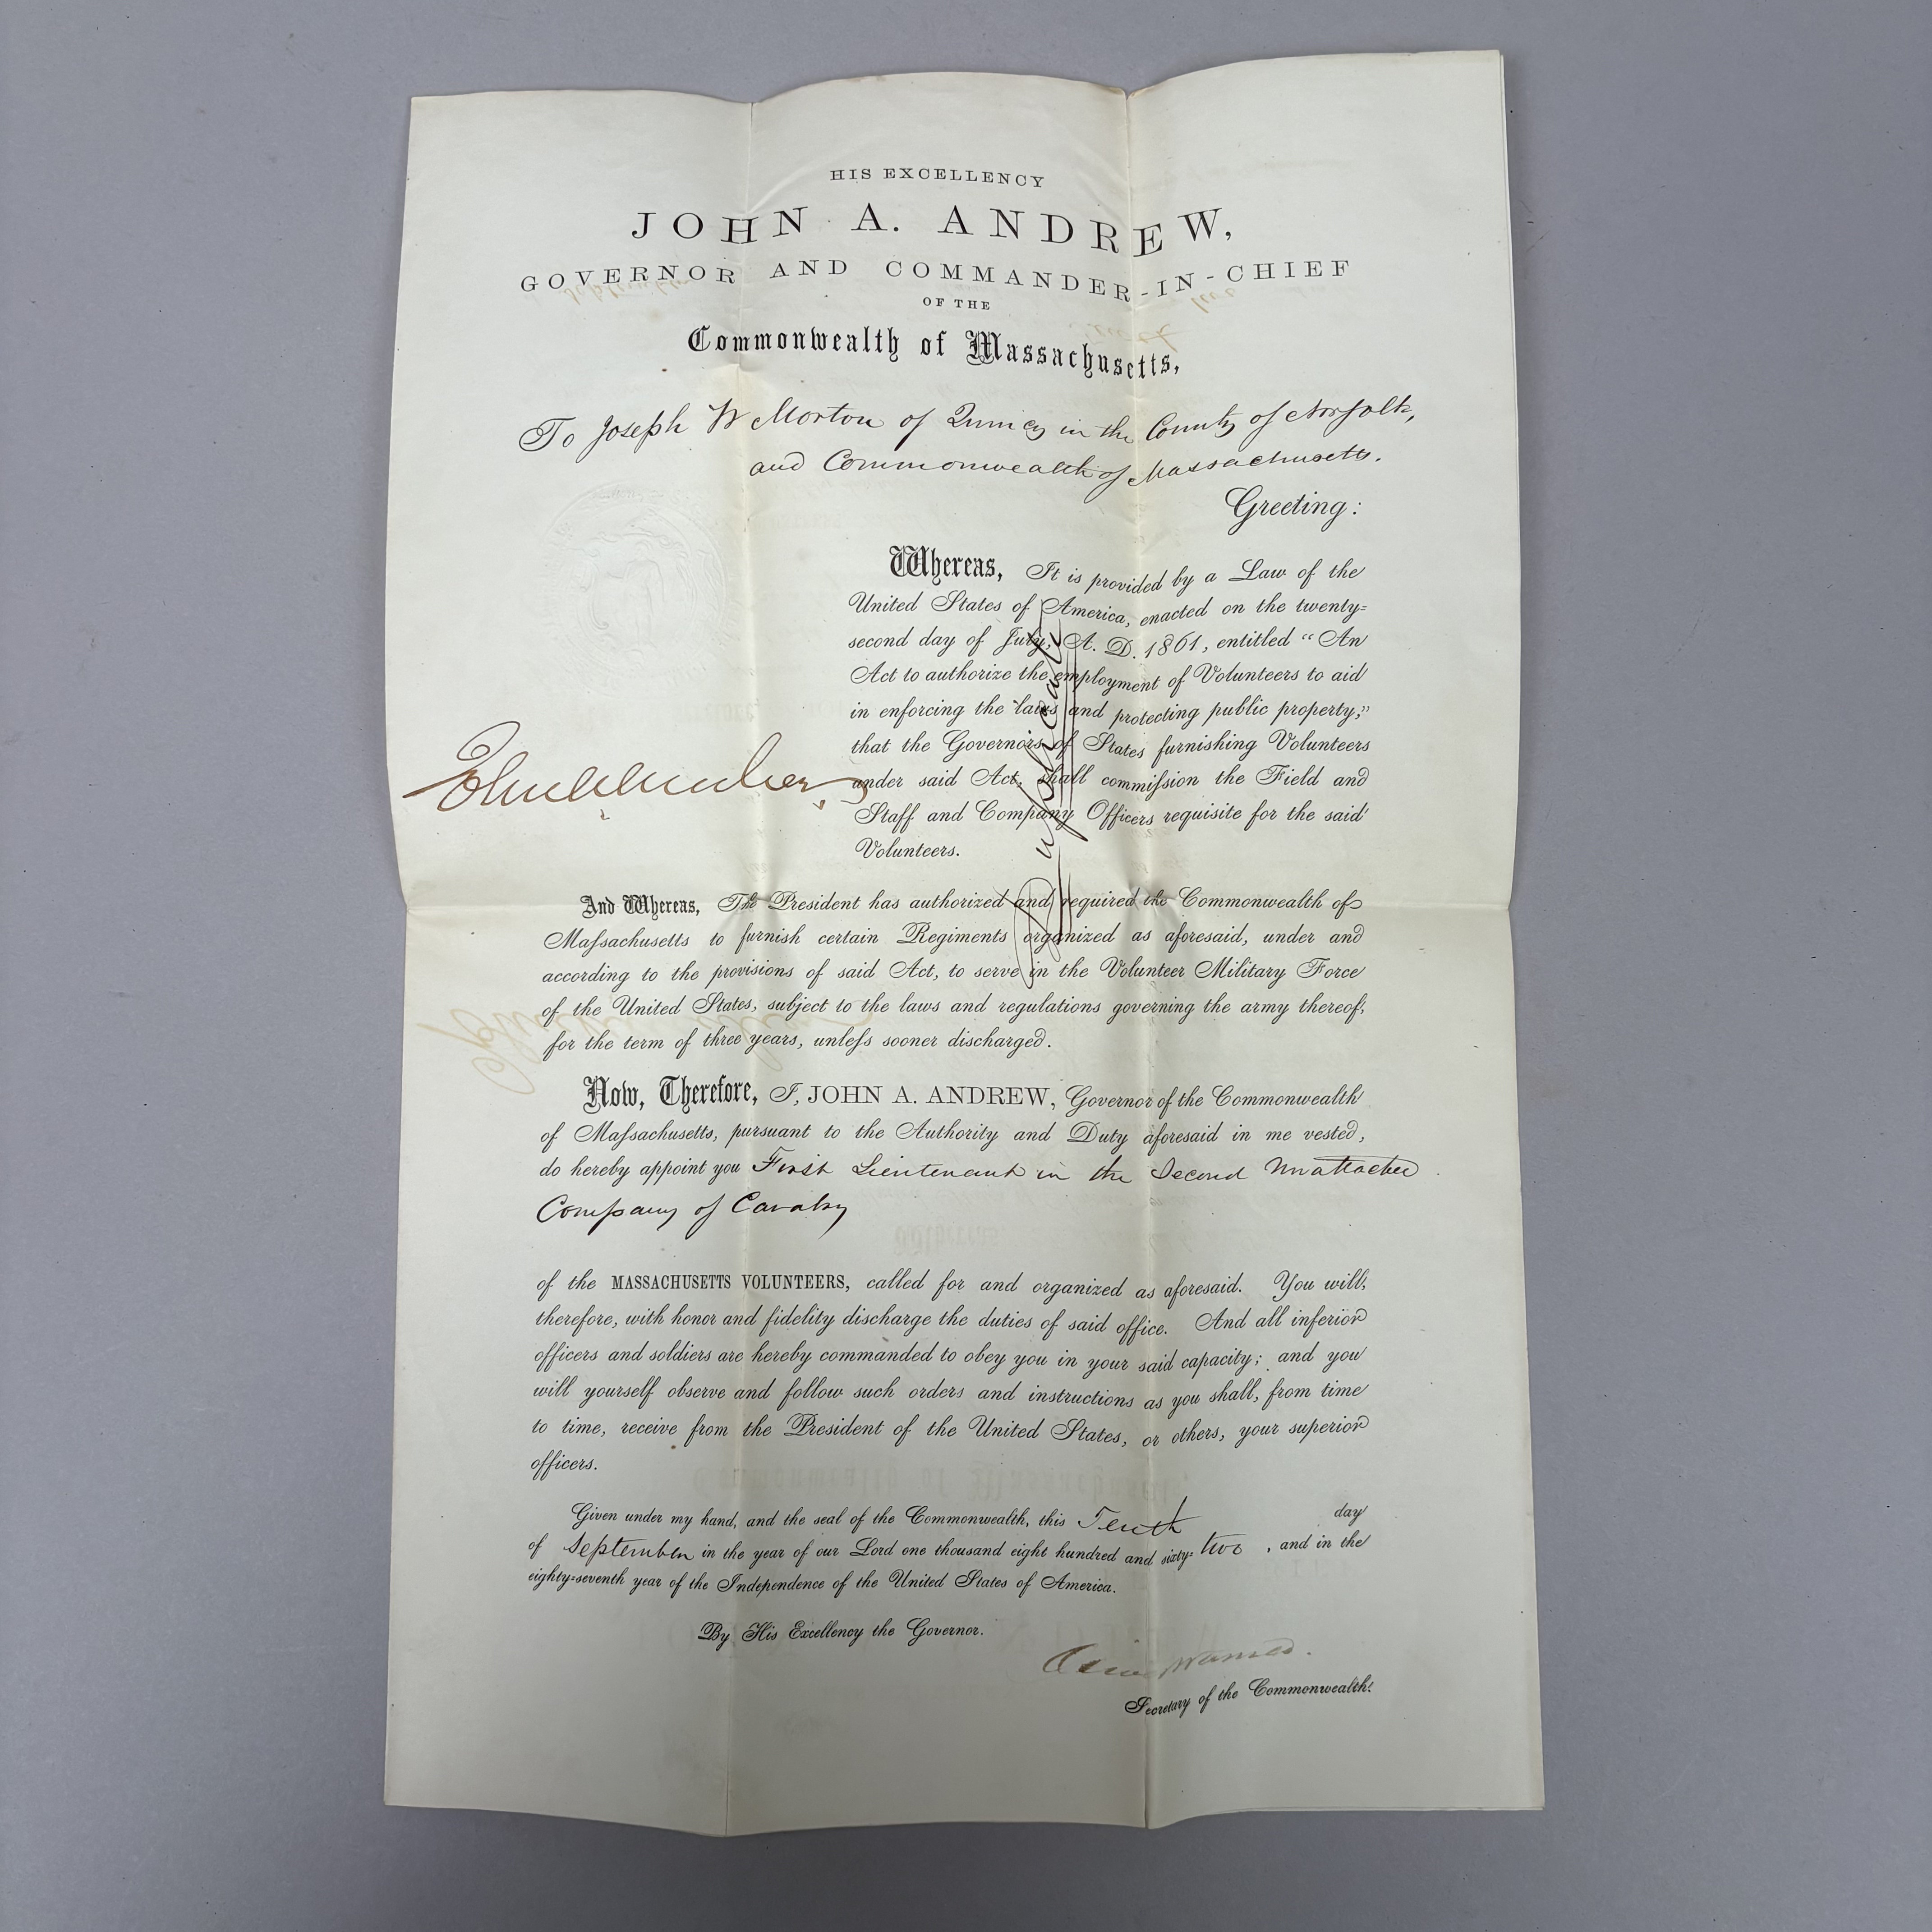 HIS EXCELLENCY
JOHN A. ANDREW,
GOVERNOR AND COMMANDER-IN-CHIEF
OF THE
Commonwealth of Massachusetts,
To Joseph W Morton of Quincy in the County of Norfolk,
and Commonwealth of Massachusetts.
Greeting:
Whereas, It is provided by a Law of the
United States of America, enacted on the twenty-
second day of July, A. D. 1861, entitled "An
Act to authorize the employment of Volunteers to aid
in enforcing the laws and protecting public property,"
that the Governors of States furnishing Volunteers
under said Act, shall commission the Field and
Staff and Company Officers requisite for the said
Volunteers.
Duplicate
And Whereas, The President has authorized and required the Commonwealth of
Massachusetts to furnish certain Regiments organized as aforesaid, under and
according to the provisions of said Act, to serve in the Volunteer Military Force
of the United States, subject to the laws and regulations governing the army thereof,
for the term of three years, unless sooner discharged.
Now, Therefore, I, JOHN A. ANDREW, Governor of the Commonwealth
of Massachusetts, pursuant to the Authority and Duty aforesaid in me vested,
do hereby appoint you First Lieutenant in the Second Unattached
Company of Cavalry
of the MASSACHUSETTS VOLUNTEERS, called for and organized as aforesaid. You will,
therefore, with honor and fidelity discharge the duties of said office. And all inferior
officers and soldiers are hereby commanded to obey you in your said capacity; and you
will yourself observe and follow such orders and instructions as you shall, from time
to time, receive from the President of the United States, or others, your superior
officers.
Given under my hand, and the seal of the Commonwealth, this Tenth day
of September in the year of our Lord one thousand eight hundred and sixty-two, and in the
eighty-seventh year of the Independence of the United States of America.
By His Excellency the Governor.
Secretary of the Commonwealth.